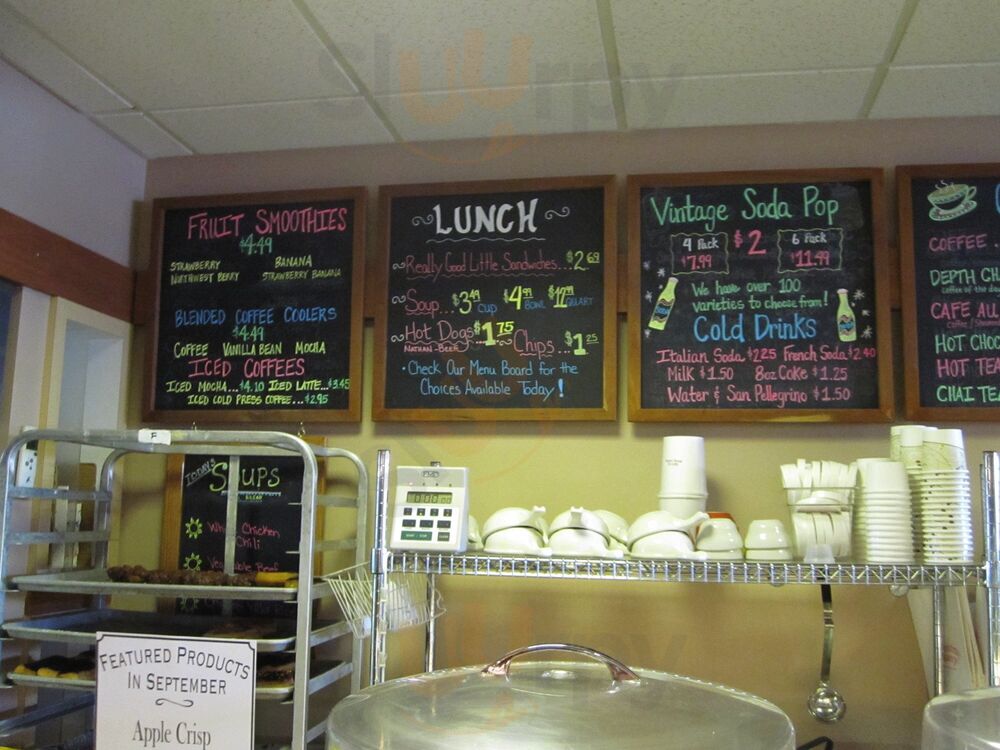 slurpy
FRUIT SMOOTHIES
$4.49
STRAWBERRY BANANA
NORTHWEST BERRY STRAWBERRY BANANA
BLENDED COFFEE COOLERS
$4.49
COFFEE VANILLA BEAN MOCHA
ICED COFFEES
ICED MOCHA...$4.10 ICED LATTE...$3.45
ICED COLD PRESS COFFEE...$2.95
LUNCH
Really Good Little Sandwiches...$2.69
Soup $3.49 CUP $4.99 BOWL QUART
Hot Dogs $1.75
NATHAN-BEEF
Chips...$1.25
Check Our Menu Board for the
Choices Available Today!
Vintage Soda Pop
4 Pack $7.99
$2
6 Pack $11.99
We have over 100
varieties to choose from!
Cold Drinks
Italian Soda $2.25 French Soda $2.40
Milk $1.50 8oz Coke $1.25
Water & San Pellegrino $1.50
COFFEE
DEPTH CH
coffee of the da
CAFE AU
HOT CHOC
HOT TEA
CHAI TEA
TODAY'S SOUPS
Chicken
Chili
Beef
FEATURED PRODUCTS
IN SEPTEMBER
Apple Crisp